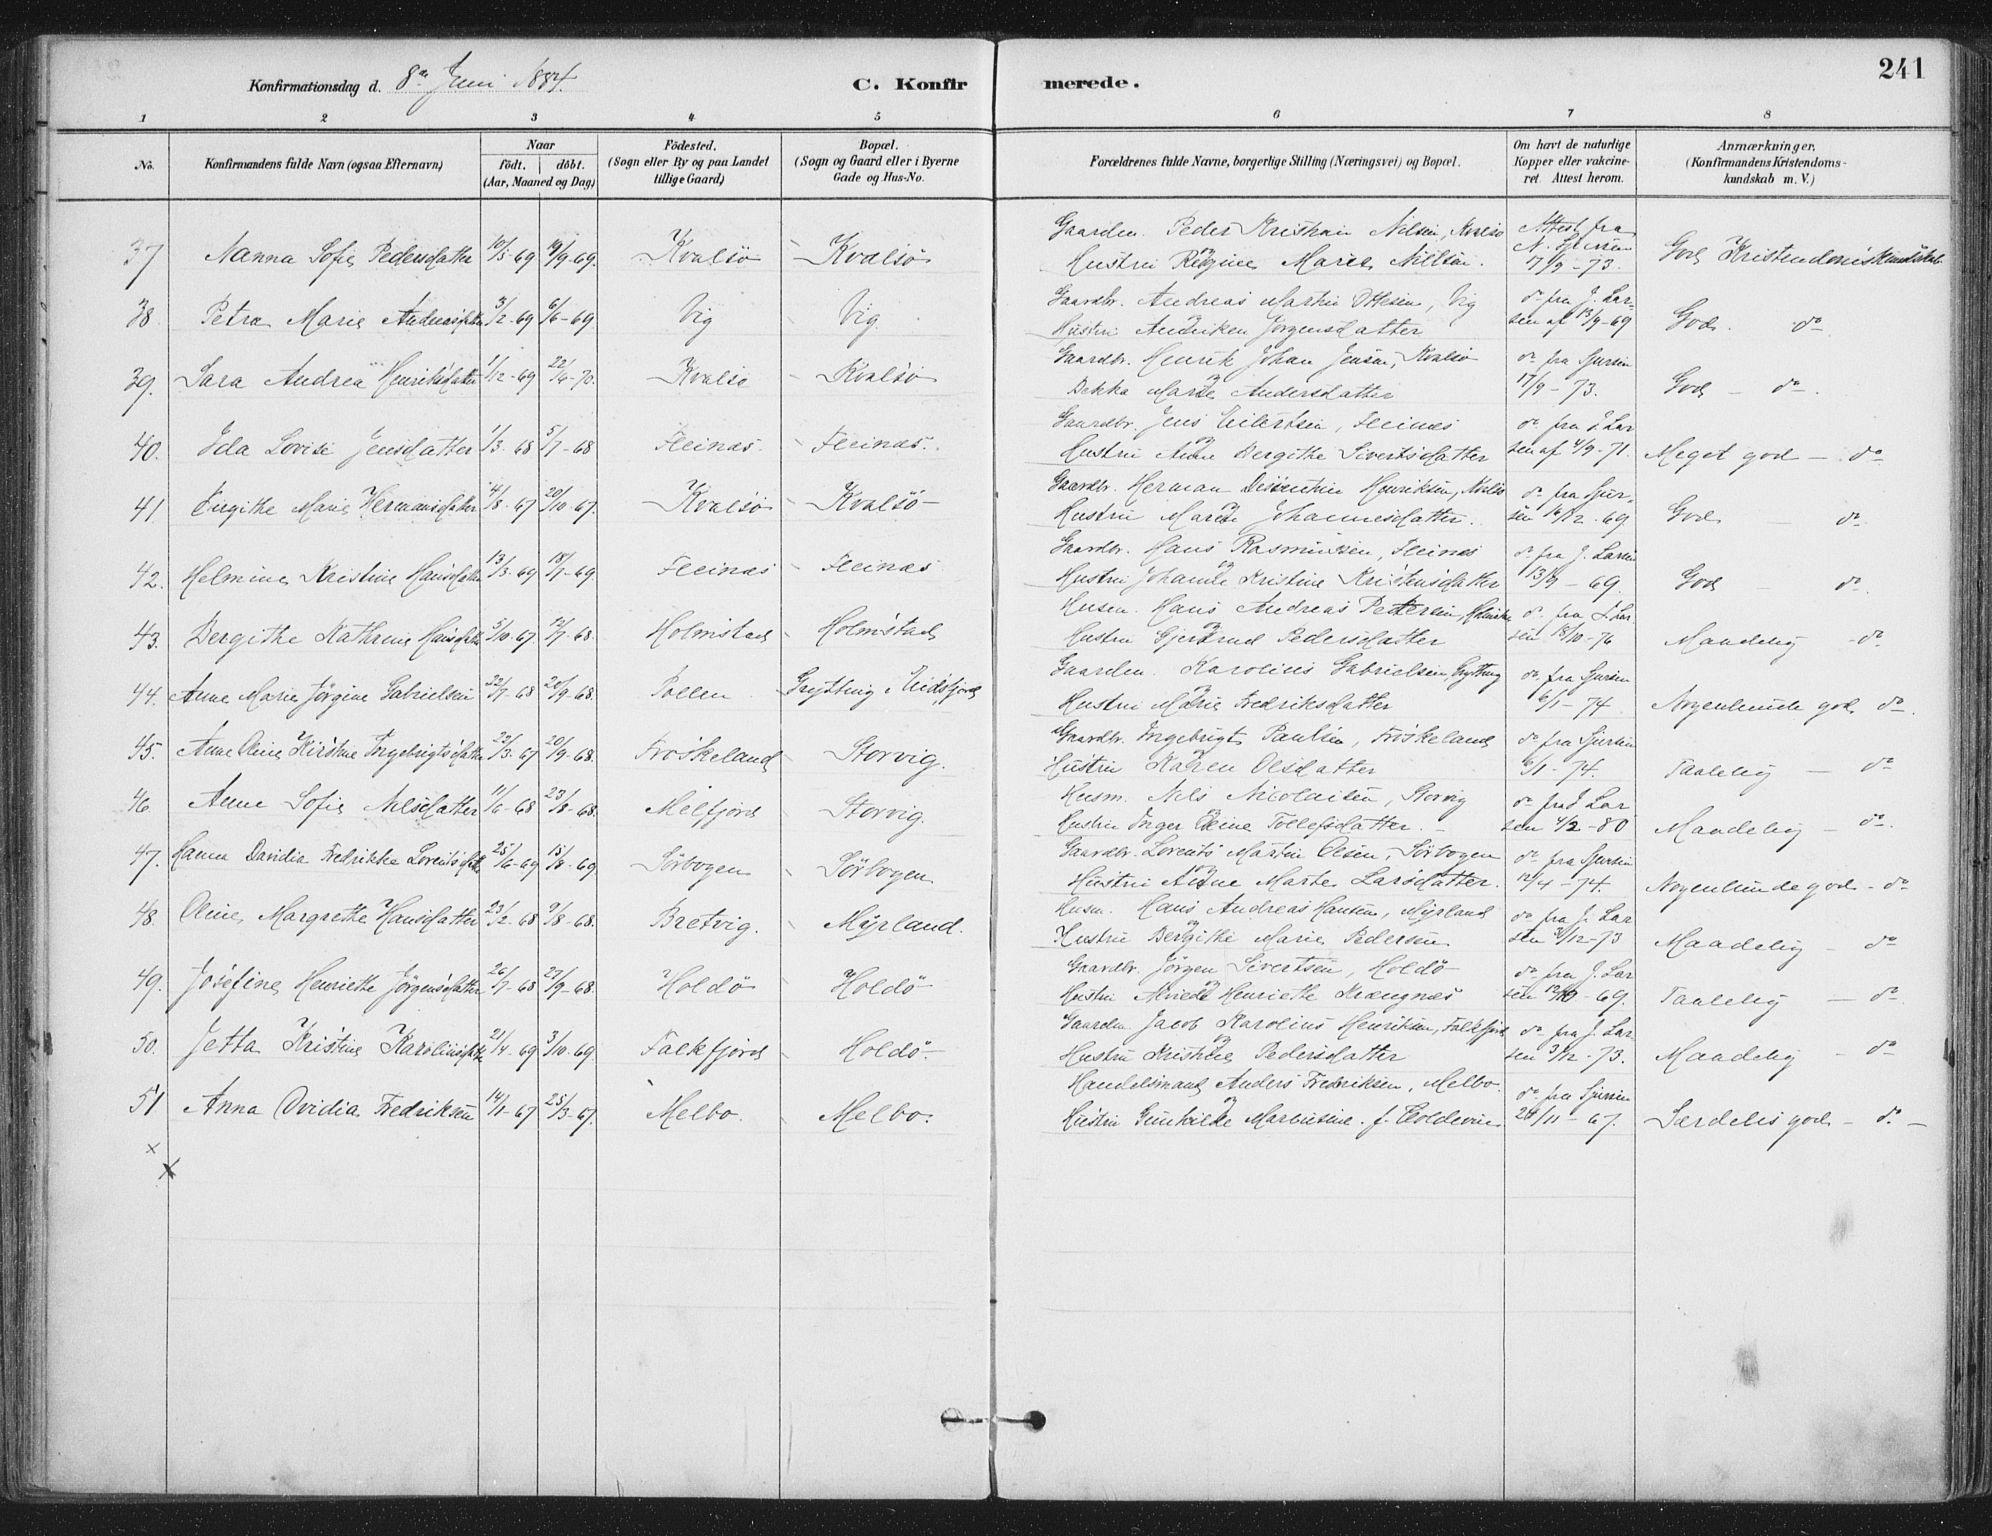 241
Konfirmationsdag d. 8de Juni 1884.
C. Konfirmerede.
1 2 3 4 5 6 7 8
No. Konfirmandens fulde Navn (ogsaa Efternavn) Naar födt. döbt. (Aar, Maaned og Dag.) Födested. (Sogn eller By og paa Landet tillige Gaard.) Bopæl. (Sogn og Gaard eller i Byerne Gade og Hus-No. Forældrenes fulde Navne, borgerlige Stilling (Næringsvei) og Bopæl. Om havt de naturlige Kopper eller vakcineret. Attest herom. Anmærkninger, (Konfirmandens Kristendomskundskab m. V.)
Gaardm. Peder Kristian Nilsen, Kvalsö Attest fra
37 Nanna Sofie Pedersdatter 10/5-69 19/9-69. Kvalsö Kvalsö og Hustru Regine Marie Nilsen. 17/9-73. God Kristendomskundskab
Gaardbr. Andreas Martin Ottesen, Vig do fra J. Lar-
38. Petra Marie Andreasdatter 3/2-69 6/6-69 Vig Vig og Hustru Andriken Jörgensdatter sen af 13/9-69 God do
Gaardbr. Henrik Johan Jensen, Kvalsö do fra Sjursen
39. Sara Andrea Henriksdatter 1/12-69 22/6-70. Kvalsö Kvalsö og Marie Andersdatter 17/9-73. God - do.
Gaardbr. Jens Eilertsen, Fleinæs do fra J. Lar
40. Ida Lovise Jensdatter 1/3-68 5/7-68 Fleinæs. Fleinæs. og Hustru Anne Bergithe Sivertsdatter sen af 4/9-71. Meget god - do
Gaardbr. Herman Henriksen, Kvalsö do fra Sjur-
41 Birgithe Marie Hermansdatter 4/8-67 20/10-67. Kvalsö Kvalsö og Hustru Maren Johannesdatter. sen 16/12-69 God do.
Gaardbr. Hans Rasmussen, Fleinæs do fra J. Larsen
42. Helmine Kristine Hansdatter 13/3-69 18/7-69. Fleinæs Fleinæs og Hustru Johanne Kristine Kristensdatter 13/9-69. God - do.
Husm. Hans Andreas Pedersen, do fra J. Lar
43. Bergithe Kathrine Hansdatter 5/10-67. 12/7-68. Holmstad Holmstad og Hustru Gjertrud Pedersdatter sen 18/10-76 Maadelig - do.
Gaardm. Karolius Gabrielsen, Grytting do fra Sjursen
44. Anne Marie Jörgine Gabrielsen 22/7-68 20/9-68. Pollen Grytting i Eidsfjord og Hustru Marie Fredriksdatter 6/1-74 Nogenlunde god do.
Gaardbr. Ingebrigt Paulsen, Fröskeland do fra Sjursen
45. Anne Oline Kirstine Ingebrigtsdatter 22/3-67 20/9-68. Fröskeland Storvig. og Hustru Karen Olsdatter 6/1-74. Taalelig - do
Husm. Nils Nicolaisen, Storvig do fra J Lar
46. Anne Sofie Nilsdatter 11/6-68 23/8-68. Melfjord Storvig. og Hustru Inger Oleine Tollefsdatter. sen 4/2-80 Maadelig - do.
Gaardbr. Lorents Martin Olsen, Sörbogen do fra Sjursen
47. Hanna Davidia Fredrikke Lorentsdatter 25/6-69 15/8-69. Sörbogen Sörbogen og Hustru Anne Marte Larsdatter. 12/4-74. Nogenlunde god - do
Husm. Hans Andreas Hansen, Myrland do fra J. Lar
48. Oline Margrethe Hansdatter 23/2-68 9/8-68. Bretvig. Myrland. og Hustru Bergithe Marie Pedersen. sen /12-73 Maadelig - do
Gaardbr. Jörgen Sivertsen, Holdö do fra J. Lar
49. Josefine Henriette Jörgensdatter 26/7-68 27/9-68. Holdö Holdö og Hustru Henriette Krængnæs sen - 69. Taalelig - do
Gaardm. Jacob Karolius Henriksen, Falkfjord do fra J. Lar
50. Jetta Kristine Karoliusdatter 21/4-69 3/10-69. Falkfjord Holdö. og Hustru Kristine Pedersdatter sen 3/12-73. Maadelig - do
Handelsmand Anders Fredriksen, Melbo. do fra Sjursen
51 Anna Ovidia Fredriksen 14/1-67 25/3-67. Melbo. Melbo. og Hustru Gunhilde f. Coldevin 29/11-67. Særdeles god - do. -
x
x